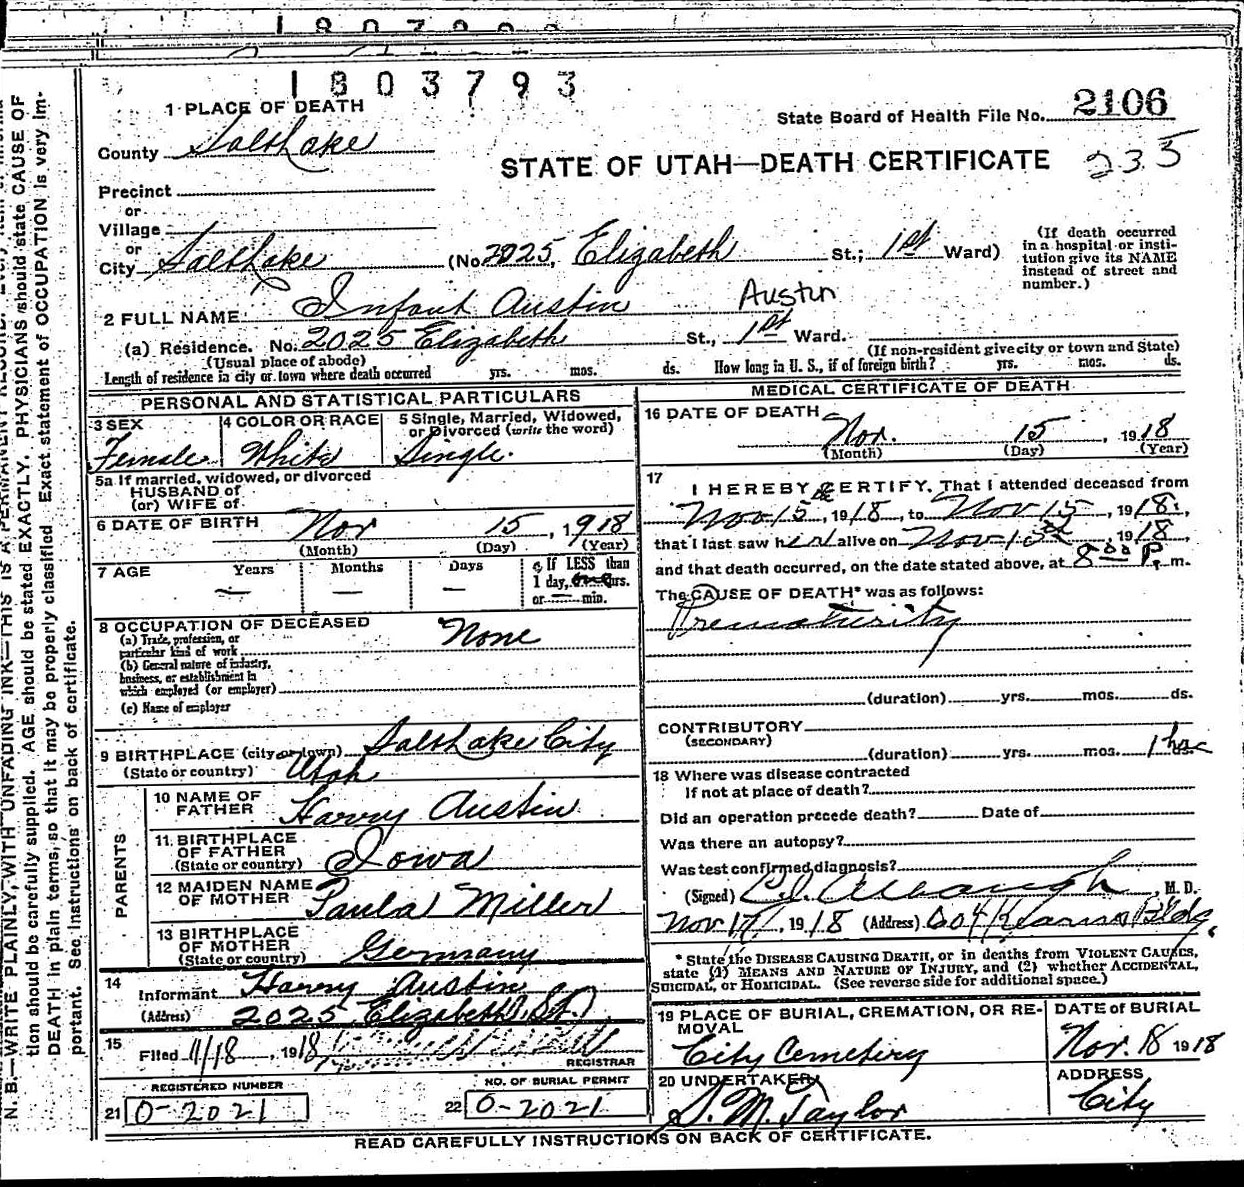 1803793
State Board of Health File No. 2106
235
STATE OF UTAH—DEATH CERTIFICATE
1 PLACE OF DEATH
County Salt Lake
Precinct
or
Village
or
City Salt Lake (No. 2025, Elizabeth St.; 1st Ward)
(If death occurred in a hospital or insti-
tution give its NAME
instead of street and
number.)
2 FULL NAME Infant Austin Austin
(a) Residence. No. 2025 Elizabeth St., 1st Ward.
(Usual place of abode) (If non-resident give city or town and State)
Length of residence in city or town where death occurred yrs. mos. ds. How long in U. S., if of foreign birth? yrs. mos. ds.
PERSONAL AND STATISTICAL PARTICULARS
3 SEX Female
4 COLOR OR RACE White
5 Single, Married, Widowed,
or Divorced (write the word)
Single.
5a If married, widowed, or divorced
HUSBAND of
(or) WIFE of
6 DATE OF BIRTH Nov 15, 1918
(Month) (Day) (Year)
7 AGE Years Months Days If LESS than
1 day, hrs.
or min.
8 OCCUPATION OF DECEASED None
(a) Trade, profession, or
particular kind of work
(b) General nature of industry,
business, or establishment in
which employed (or employer)
(c) Name of employer
9 BIRTHPLACE (city or town) Salt Lake City
(State or country) Utah
PARENTS
10 NAME OF
FATHER Harry Austin
11 BIRTHPLACE
OF FATHER
(State or country) Iowa
12 MAIDEN NAME
OF MOTHER Paula Miller
13 BIRTHPLACE
OF MOTHER
(State or country) Germany
14
Informant Harry Austin
(Address) 2025 Elizabeth St.
15
Filed 11/18, 1918
REGISTRAR
REGISTERED NUMBER
21 0-2021
NO. OF BURIAL PERMIT
22 0-2021
MEDICAL CERTIFICATE OF DEATH
16 DATE OF DEATH
Nov. 15, 1918
(Month) (Day) (Year)
17
I HEREBY CERTIFY, That I attended deceased from
Nov 15, 1918, to Nov 15, 1918,
that I last saw her alive on Nov 15, 1918
and that death occurred, on the date stated above, at 8 00 P. m.
The CAUSE OF DEATH* was as follows:
Prematurity
(duration) yrs. mos. ds.
CONTRIBUTORY
(SECONDARY)
(duration) yrs. mos. 1 hr
18 Where was disease contracted
If not at place of death?
Did an operation precede death? Date of
Was there an autopsy?
Was test confirmed diagnosis?
(Signed) M. D.
Nov 17, 1918 (Address) 604 Kearns Bldg.
* State the DISEASE CAUSING DEATH, or in deaths from VIOLENT CAUSES,
state (1) MEANS AND NATURE OF INJURY, and (2) whether ACCIDENTAL,
SUICIDAL, or HOMICIDAL. (See reverse side for additional space.)
19 PLACE OF BURIAL, CREMATION, OR RE-
MOVAL
City Cemetery
DATE OF BURIAL
Nov. 18 1918
20 UNDERTAKER
S. M. Taylor
ADDRESS
City
READ CAREFULLY INSTRUCTIONS ON BACK OF CERTIFICATE.
N. B.—WRITE PLAINLY, WITH UNFADING INK—THIS IS A PERMANENT RECORD.
tion should be carefully supplied. AGE should be stated EXACTLY. PHYSICIANS should state CAUSE OF
DEATH in plain terms, so that it may be properly classified. Exact statement of OCCUPATION is very im-
portant. See instructions on back of certificate.